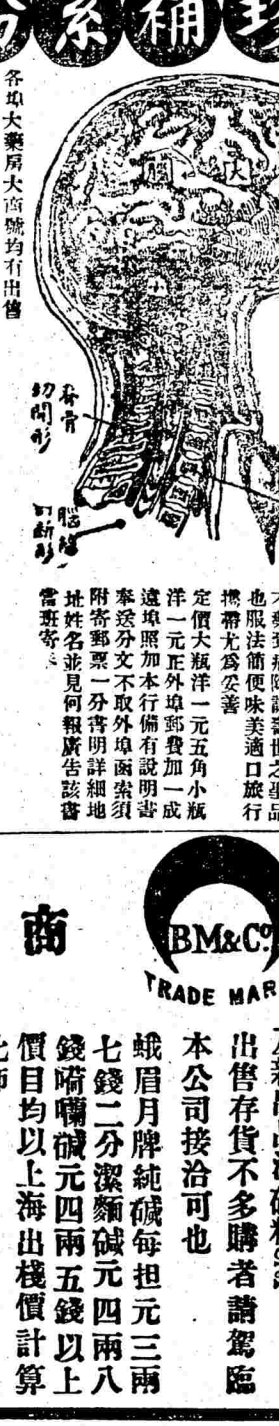 系補
各埠大藥房大商號均有出售
大
腦
小
脊骨
切開形
腦髓
切斷形
也服法簡便味美適口旅行
攜帶尤爲妥善
定價大瓶洋一元五角小瓶
洋一元正外埠郵費加一成
遠埠照加本行備有說明書
奉送分文不取外埠函索須
附寄郵票一分書明詳細地
址姓名並見何報廣告該書
當班寄
BM&Co
TRADE MAR
商
出售存貨不多購者請駕臨
本公司接洽可也
蛾眉月牌純碱每担元三兩
七錢二分潔麵碱元四兩八
錢嗬囒碱元四兩五錢以上
價目均以上海出棧價計算